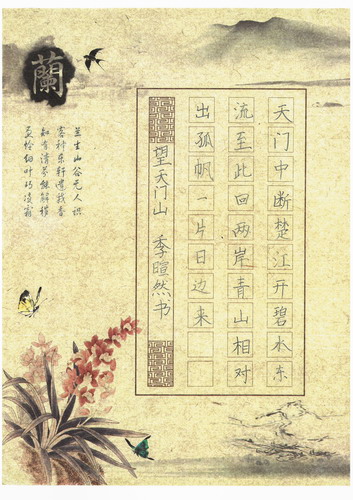 天门中断楚江开碧水东
流至此回两岸青山相对
出孤帆一片日边来
望天门山 季暄然书
蘭
兰生山谷无人识
客种东轩遗我香
知有清芬能解秽
更怜细叶巧凌霜